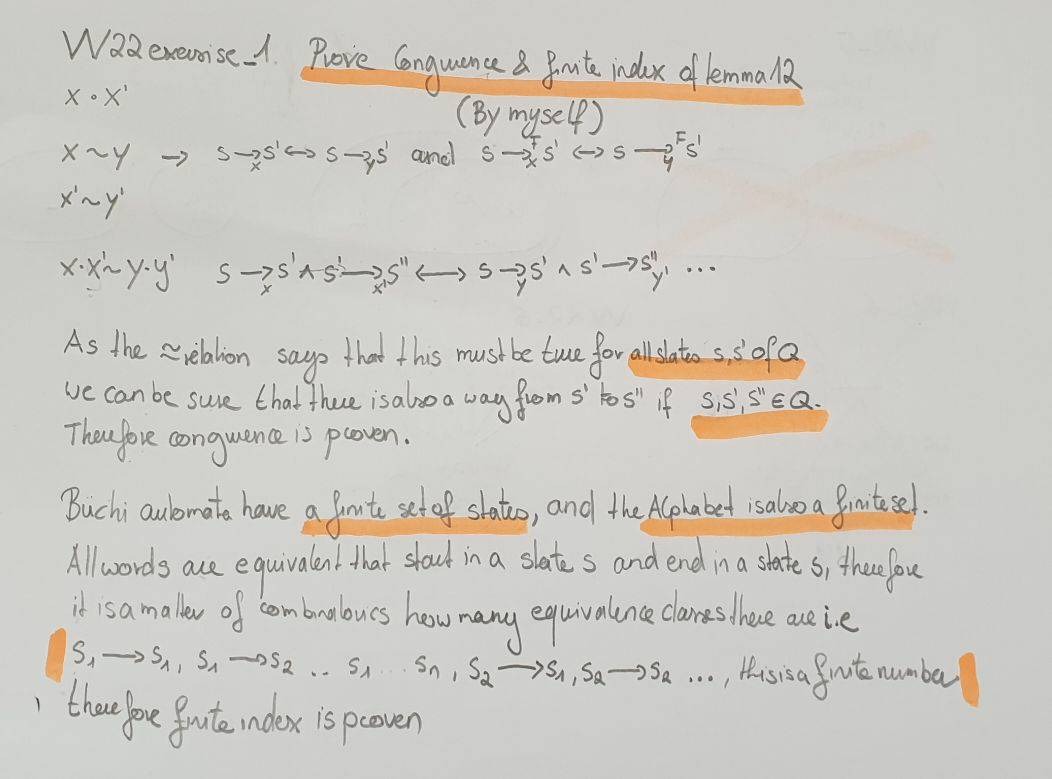 W22 exercise_1. Prove Congruence & finite index of lemma 12
(By myself)
x · x'
x ~ y → s →ₓ s' ↔ s →ᵧ s' and s →ₓᶠ s' ↔ s →ᵧᶠ s'
x' ~ y'
x·x' ~ y·y' s →ₓ s' ∧ s' →ₓ' s'' ↔ s →ᵧ s' ∧ s' → s''ᵧ' ...
As the ≈ relation says that this must be true for all states s,s' of Q
we can be sure that there is also a way from s' to s'' if s,s',s'' ∈ Q.
Therefore congruence is proven.
Büchi automata have a finite set of states, and the Alphabet is also a finite set.
All words are equivalent that start in a state s and end in a state s, therefore
it is a matter of combinatorics how many equivalence classes there are i.e
S₁ → S₁, S₁ → S₂ .. S₁ ... Sn, S₂ → S₁, S₂ → S₂ ..., this is a finite number
therefore finite index is proven